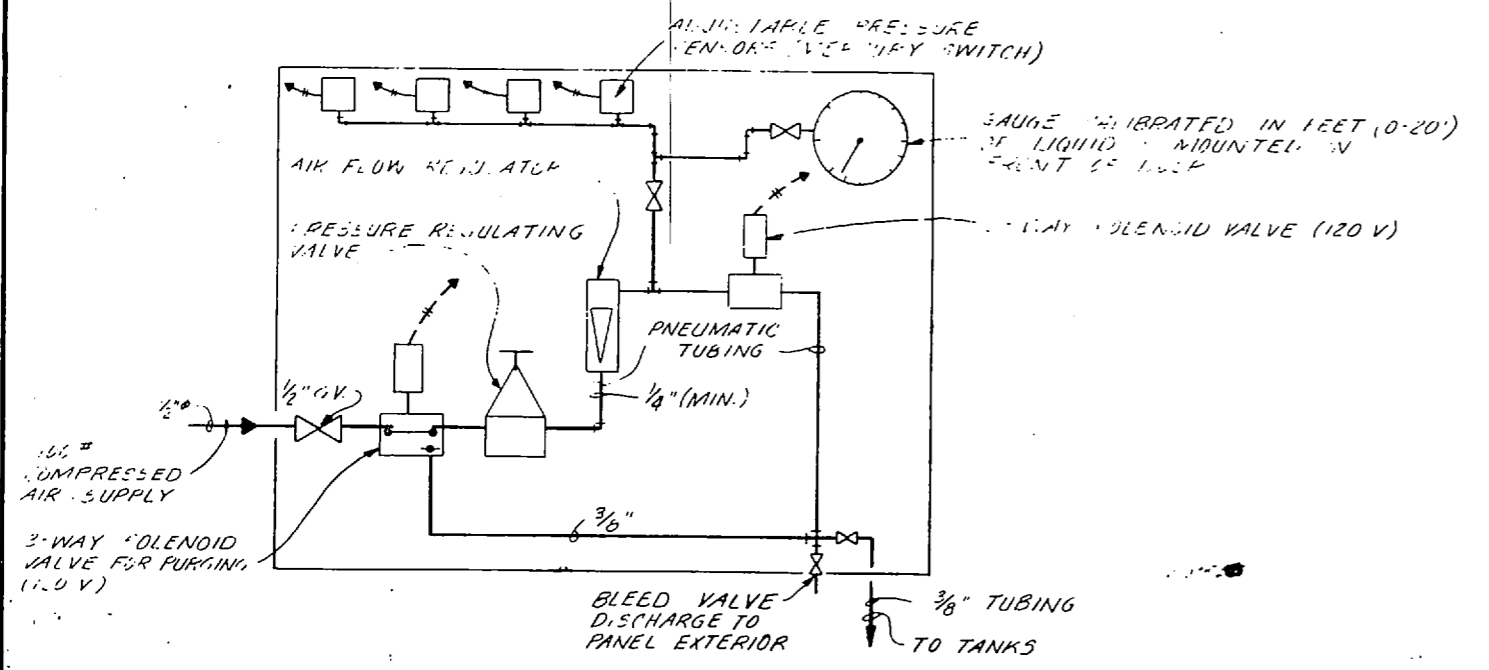 ADJUSTABLE PRESSURE
SENSORS (MERCURY SWITCH)
GAUGE CALIBRATED IN FEET (0-20')
OF LIQUID MOUNTED
FRONT OF
AIR FLOW REGULATOR
PRESSURE REGULATING
VALVE
WAY SOLENOID VALVE (120 V)
PNEUMATIC
TUBING
1/4" (MIN.)
1/2" G.V.
1/2"ø
COMPRESSED
AIR SUPPLY
3-WAY SOLENOID
VALVE FOR PURGING
(120 V)
3/8"
BLEED VALVE
DISCHARGE TO
PANEL EXTERIOR
3/8" TUBING
TO TANKS